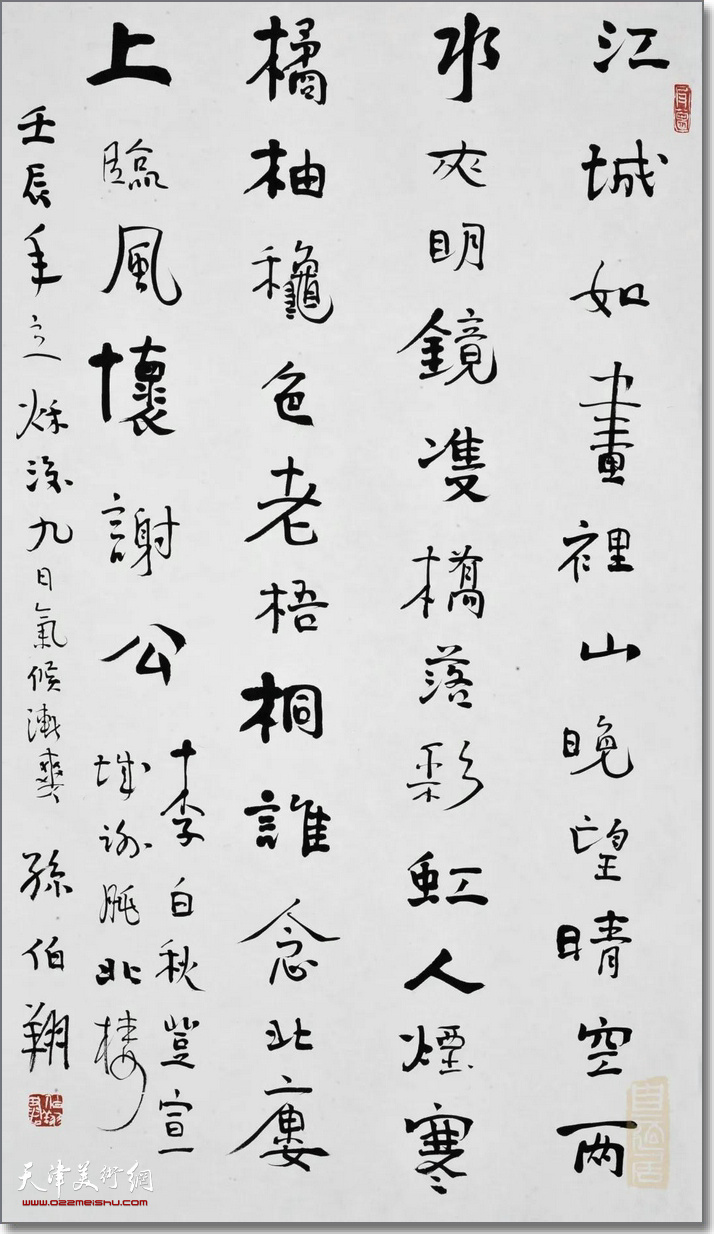 江城如畫裡山晚望晴空兩
水夾明鏡雙橋落彩虹人煙寒
橘柚龝色老梧桐誰念北廔
上臨風懷謝公
李白秋登宣
城謝朓北樓
壬辰年立秌後九日氣候漸爽 孫伯翔
天津美術網
www.022meishu.com